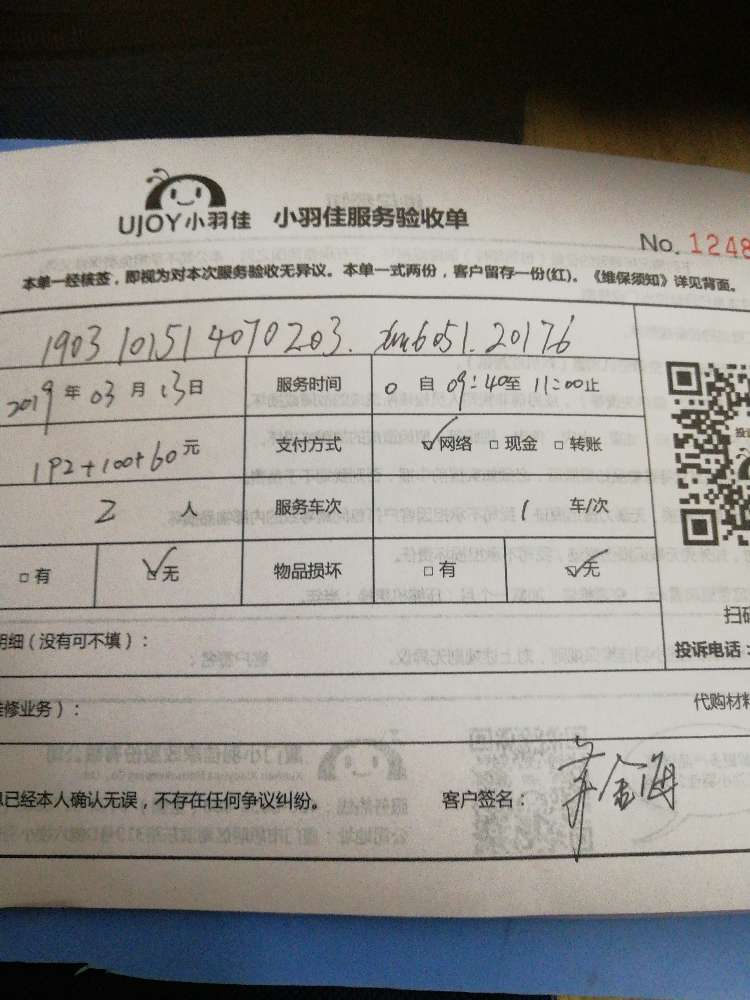 UJOY小羽佳 小羽佳服务验收单
No. 1248
本单一经核签，即视为对本次服务验收无异议。本单一式两份，客户留存一份(红)。《维保须知》详见背面。
1903101514070203. 6051.20176
2019年03月13日 服务时间 自09:40至11:00止
192+100+60元 支付方式 ☑网络 □现金 □转账
2人 服务车次 1车/次
□有 ☑无 物品损坏 □有 ☑无
扫码
明细（没有可不填）： 投诉电话：
维修业务）： 代购材料
息已经本人确认无误，不存在任何争议纠纷。 客户签名： 金海